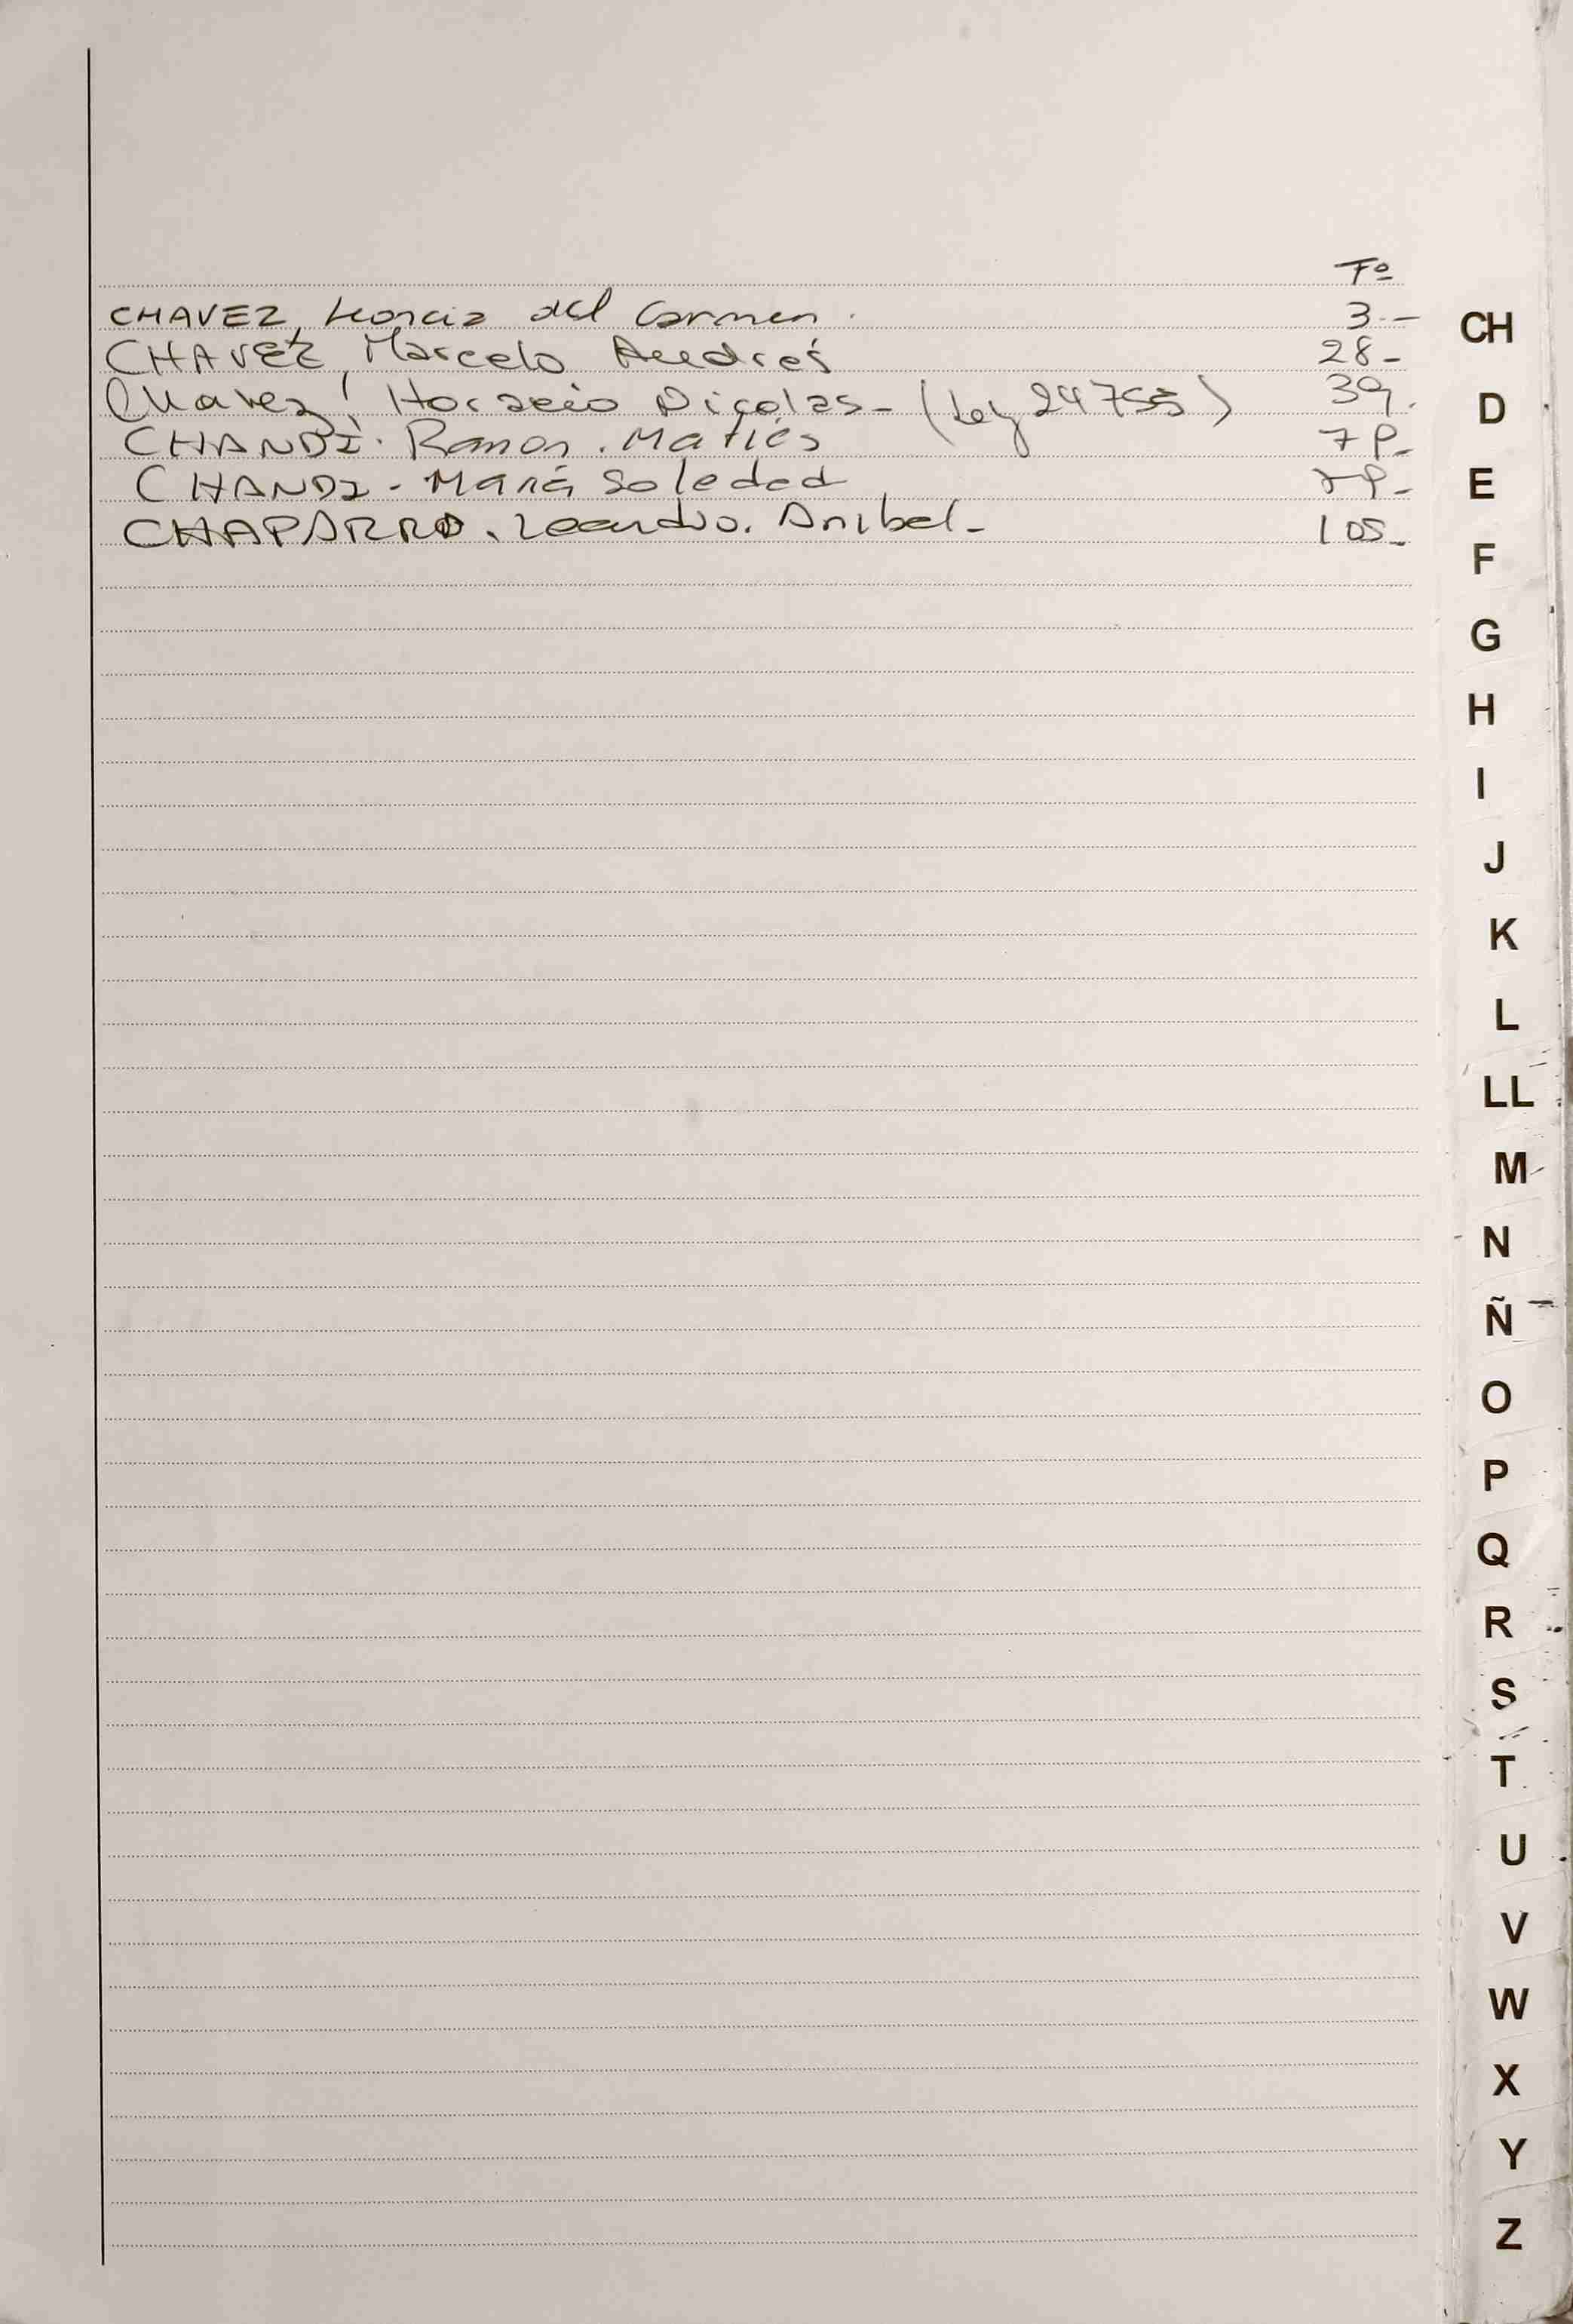 Fº
CHAVEZ, Leoncia del Carmen. 3.- CH
CHAVEZ, Marcelo Andrés 28-
Chavez, Horacio Nicolas- (Ley 24755) 39. D
CHANDÍ. Ramon. Matías
CHANDI - María Soledad E
CHAPARRO. Leandro. Anibal- 105-
F
G
H
I
J
K
L
LL
M
N
Ñ
O
P
Q
R
S
T
U
V
W
X
Y
Z